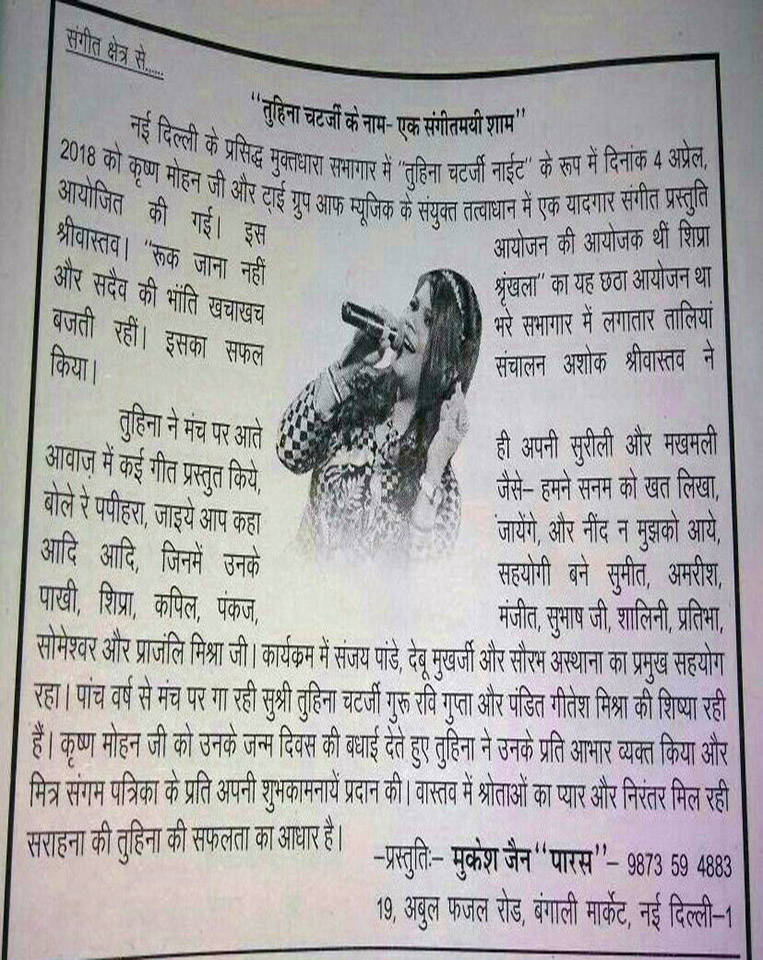 संगीत क्षेत्र से......
"तुहिना चटर्जी के नाम- एक संगीतमयी शाम"
नई दिल्ली के प्रसिद्ध मुक्तधारा सभागार में "तुहिना चटर्जी नाईट" के रूप में दिनांक 4 अप्रेल,
2018 को कृष्ण मोहन जी और ट्राई ग्रुप आफ म्यूजिक के संयुक्त तत्वाधान में एक यादगार संगीत प्रस्तुति
आयोजित की गई। इस आयोजन की आयोजक थीं शिप्रा
श्रीवास्तव। "रूक जाना नहीं श्रृंखला" का यह छठा आयोजन था
और सदैव की भांति खचाखच भरे सभागार में लगातार तालियां
बजती रहीं। इसका सफल संचालन अशोक श्रीवास्तव ने
किया।
तुहिना ने मंच पर आते ही अपनी सुरीली और मखमली
आवाज़ में कई गीत प्रस्तुत किये, जैसे– हमने सनम को खत लिखा,
बोले रे पपीहरा, जाइये आप कहा जांयेंगे, और नींद न मुझको आये,
आदि आदि, जिनमें उनके सहयोगी बने सुमीत, अमरीश,
पाखी, शिप्रा, कपिल, पंकज, मंजीत, सुभाष जी, शालिनी, प्रतिभा,
सोमेश्वर और प्राजंलि मिश्रा जी। कार्यक्रम में संजय पांडे, देबू मुखर्जी और सौरभ अस्थाना का प्रमुख सहयोग
रहा। पांच वर्ष से मंच पर गा रही सुश्री तुहिना चटर्जी गुरू रवि गुप्ता और पंडित गीतेश मिश्रा की शिष्या रही
हैं। कृष्ण मोहन जी को उनके जन्म दिवस की बधाई देते हुए तुहिना ने उनके प्रति आभार व्यक्त किया और
मित्र संगम पत्रिका के प्रति अपनी शुभकामनायें प्रदान की। वास्तव में श्रोताओं का प्यार और निरंतर मिल रही
सराहना की तुहिना की सफलता का आधार है।
–प्रस्तुतिः– मुकेश जैन "पारस"– 9873 59 4883
19, अबुल फजल रोड, बंगाली मार्केट, नई दिल्ली–1